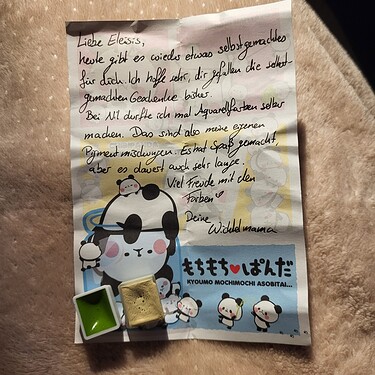 Liebe Eleisis,
heute gibt es wieder etwas selbstgemachtes
für dich. Ich hoffe sehr, dir gefallen die selbst-
gemachten Geschenke bisher.
Bei durfte ich mal Aquarellfarben selber
machen. Das sind also meine eigenen
Pigmentmischungen. Es hat Spaß gemacht,
aber es dauert auch sehr lange.
Viel Freude mit den
Farben
Deine
Wichtelmama
もちもち♥ぱんだ
KYOUMO MOCHIMOCHI ASOBITAI...